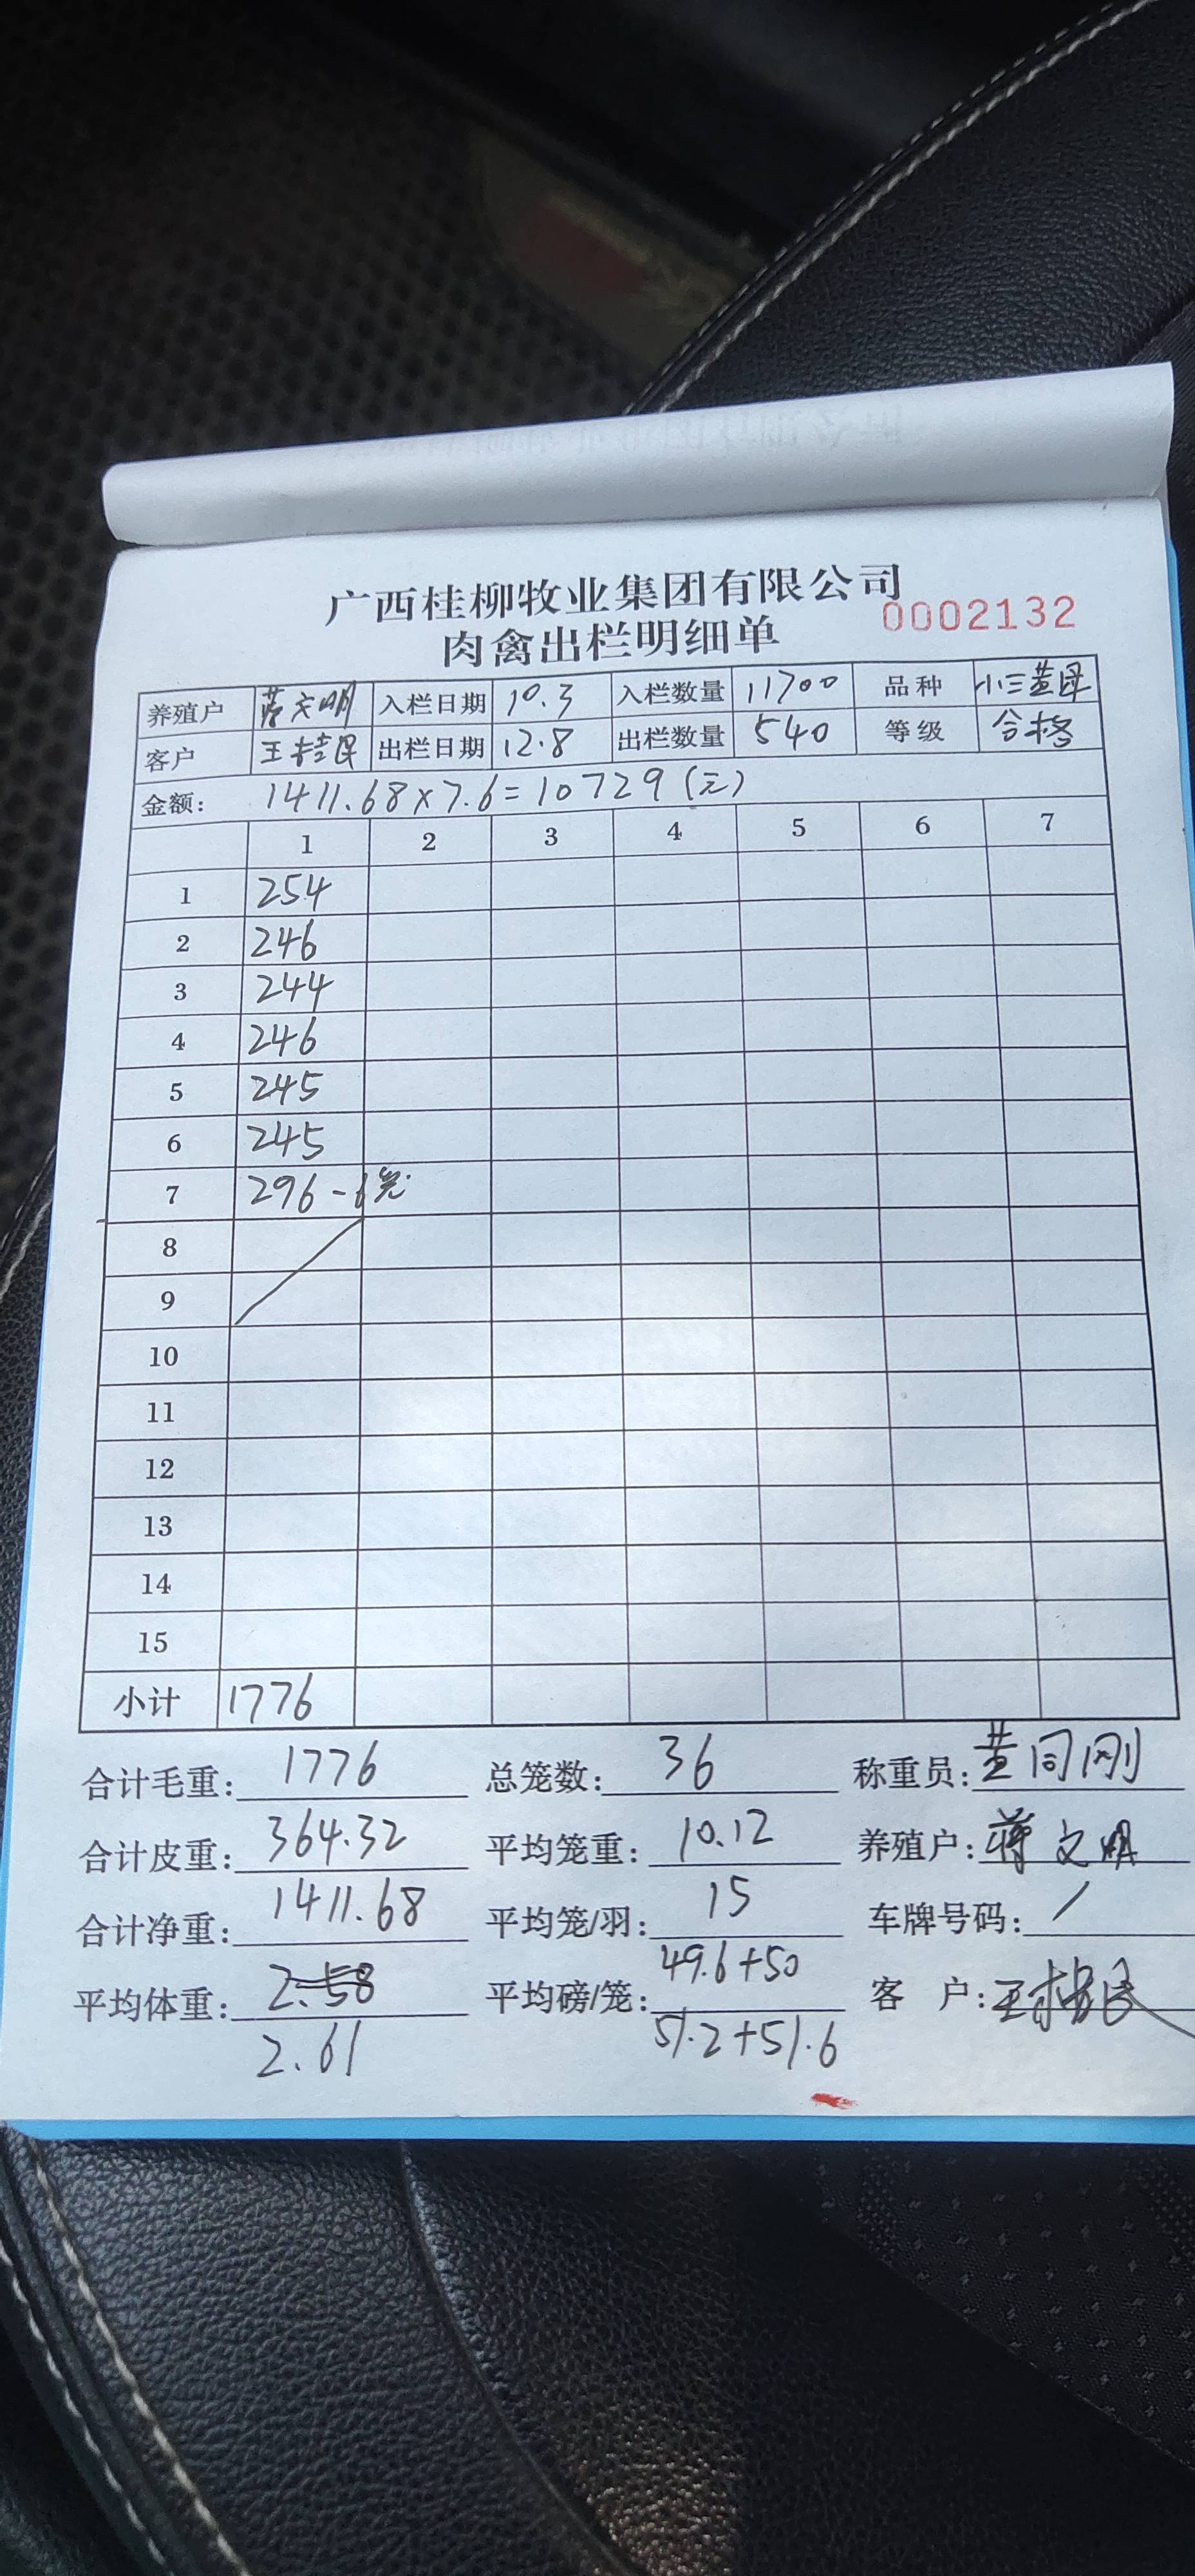 广西桂柳牧业集团有限公司
肉禽出栏明细单
0002132
养殖户 蒋文明 入栏日期 10.3 入栏数量 11700 品种 小三黄母
客户 王桂民 出栏日期 12.8 出栏数量 540 等级 合格
金额: 1411.68×7.6=10729(元)
1 2 3 4 5 6 7
1 254
2 246
3 244
4 246
5 245
6 245
7 296-6笼
8
9
10
11
12
13
14
15
小计 1776
合计毛重: 1776 总笼数: 36 称重员: 黄同刚
合计皮重: 364.32 平均笼重: 10.12 养殖户: 蒋文明
合计净重: 1411.68 平均笼/羽: 15 车牌号码: /
平均体重: 2.58 平均磅/笼: 49.6+50 客 户: 王桂民
2.61 51.2+51.6